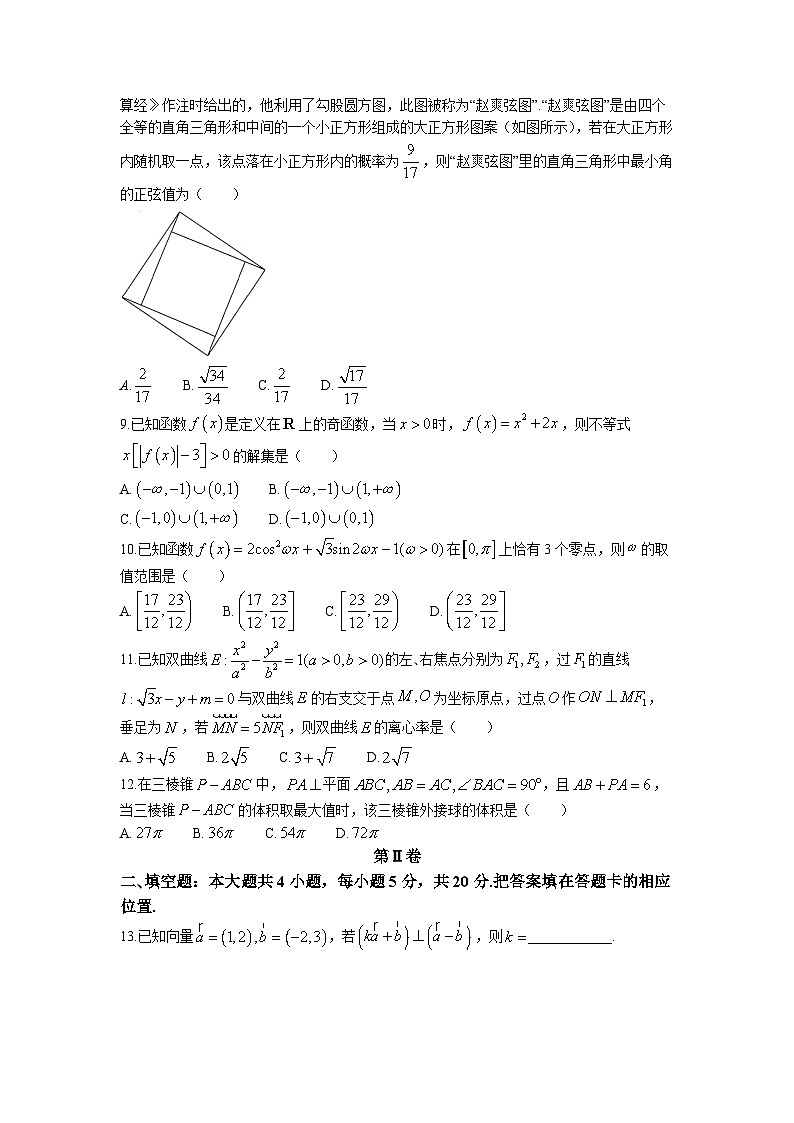 算经》作注时给出的，他利用了勾股圆方图，此图被称为“赵爽弦图”.“赵爽弦图”是由四个
全等的直角三角形和中间的一个小正方形组成的大正方形图案（如图所示），若在大正方形
内随机取一点，该点落在小正方形内的概率为 9/17，则“赵爽弦图”里的直角三角形中最小角
的正弦值为（　　）
A. 2/17　B. √34/34　C. 2/17　D. √17/17
9.已知函数 f(x) 是定义在 R 上的奇函数，当 x>0 时， f(x)=x²+2x，则不等式
x[|f(x)|−3]>0 的解集是（　　）
A. (−∞,−1)∪(0,1)　B. (−∞,−1)∪(1,+∞)
C. (−1,0)∪(1,+∞)　D. (−1,0)∪(0,1)
10.已知函数 f(x)=2cos²ωx+√3sin2ωx−1(ω>0) 在 [0,π] 上恰有 3 个零点，则 ω 的取
值范围是（　　）
A. [17/12,23/12)　B. (17/12,23/12]　C. [23/12,29/12)　D. (23/12,29/12]
11.已知双曲线 E: x²/a² − y²/b² =1(a>0,b>0) 的左、右焦点分别为 F₁,F₂，过 F₁ 的直线
l: √3x−y+m=0 与双曲线 E 的右支交于点 M,O 为坐标原点，过点 O 作 ON⊥MF₁，
垂足为 N，若 MN=5NF₁，则双曲线 E 的离心率是（　　）
A. 3+√5　B. 2√5　C. 3+√7　D. 2√7
12.在三棱锥 P−ABC 中，PA⊥平面 ABC, AB=AC, ∠BAC=90°，且 AB+PA=6，
当三棱锥 P−ABC 的体积取最大值时，该三棱锥外接球的体积是（　　）
A. 27π　B. 36π　C. 54π　D. 72π
第Ⅱ卷
二、填空题：本大题共 4 小题，每小题 5 分，共 20 分.把答案填在答题卡的相应
位置.
13.已知向量 a=(1,2), b=(−2,3)，若 (ka+b)⊥(a−b)，则 k=____________.